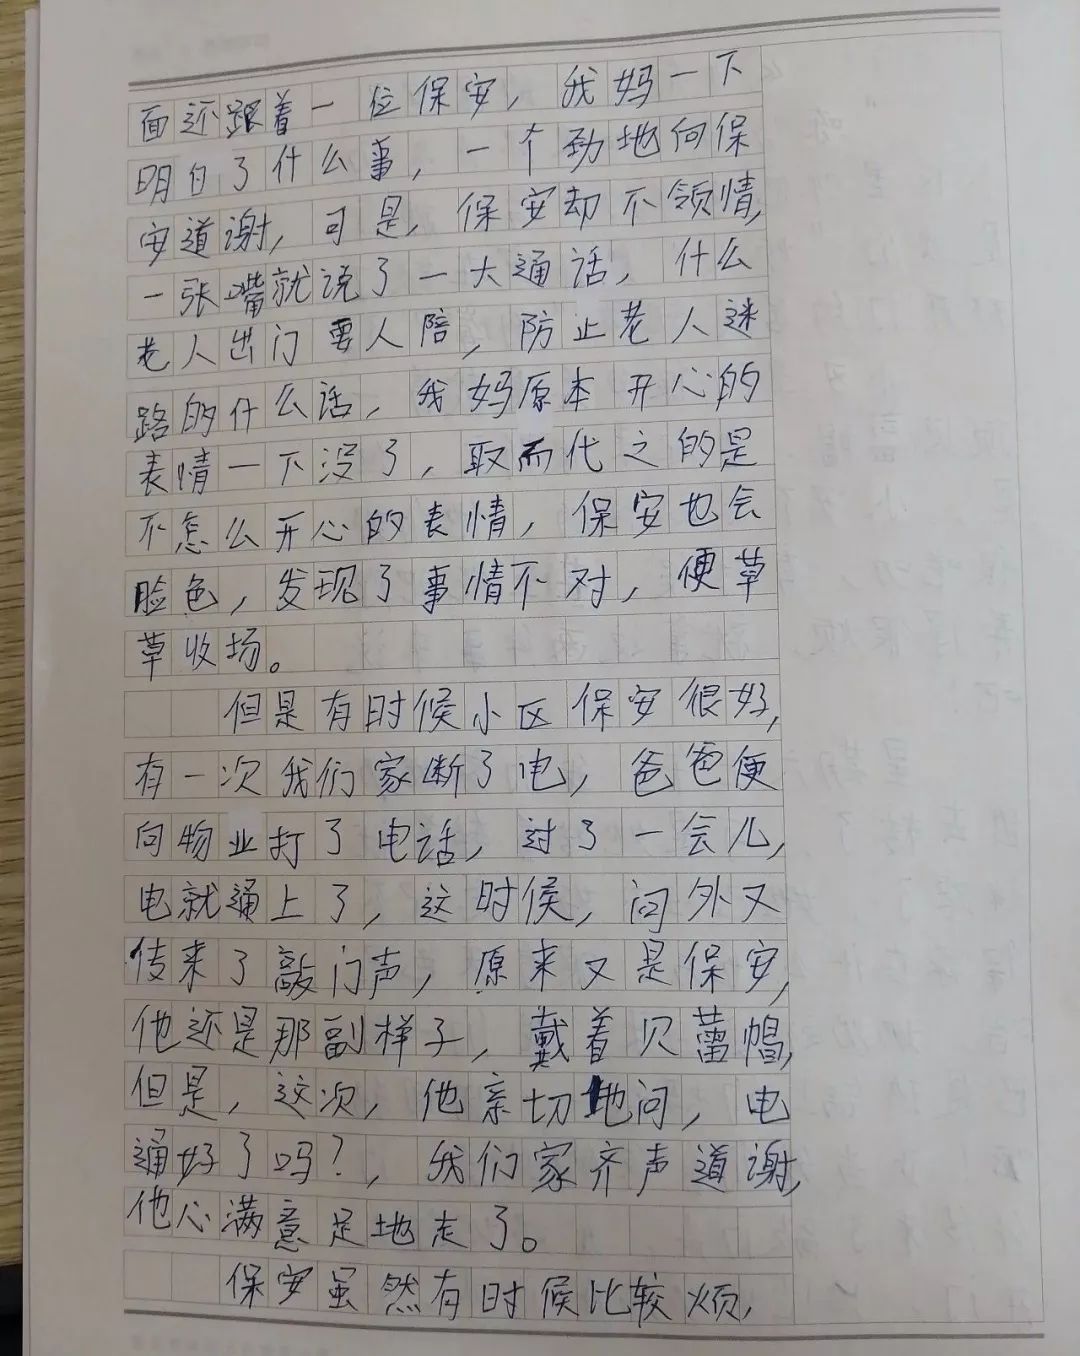 面还跟着一位保安，我妈一下
明白了什么事，一个劲地向保
安道谢，可是，保安却不领情，
一张嘴就说了一大通话，什么
老人出门要人陪，防止老人迷
路的什么话，我妈原本开心的
表情一下没了，取而代之的是
不怎么开心的表情，保安也会
脸色，发现了事情不对，便草
草收场。
但是有时候小区保安很好，
有一次我们家断了电，爸爸便
向物业打了电话，过了一会儿，
电就通上了，这时候，门外又
传来了敲门声，原来又是保安，
他还是那副样子，戴着贝蕾帽，
但是，这次，他亲切地问，电
通好了吗？，我们家齐声道谢，
他心满意足地走了。
保安虽然有时候比较烦，